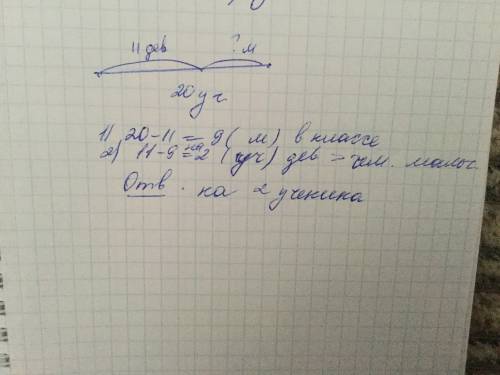 11 дев ? м
20 уч
1) 20-11 = 9 ( м ) в классе
2) 11-9 = 2 ( уч ) дев > чем. мальч.
Отв. на 2 ученика